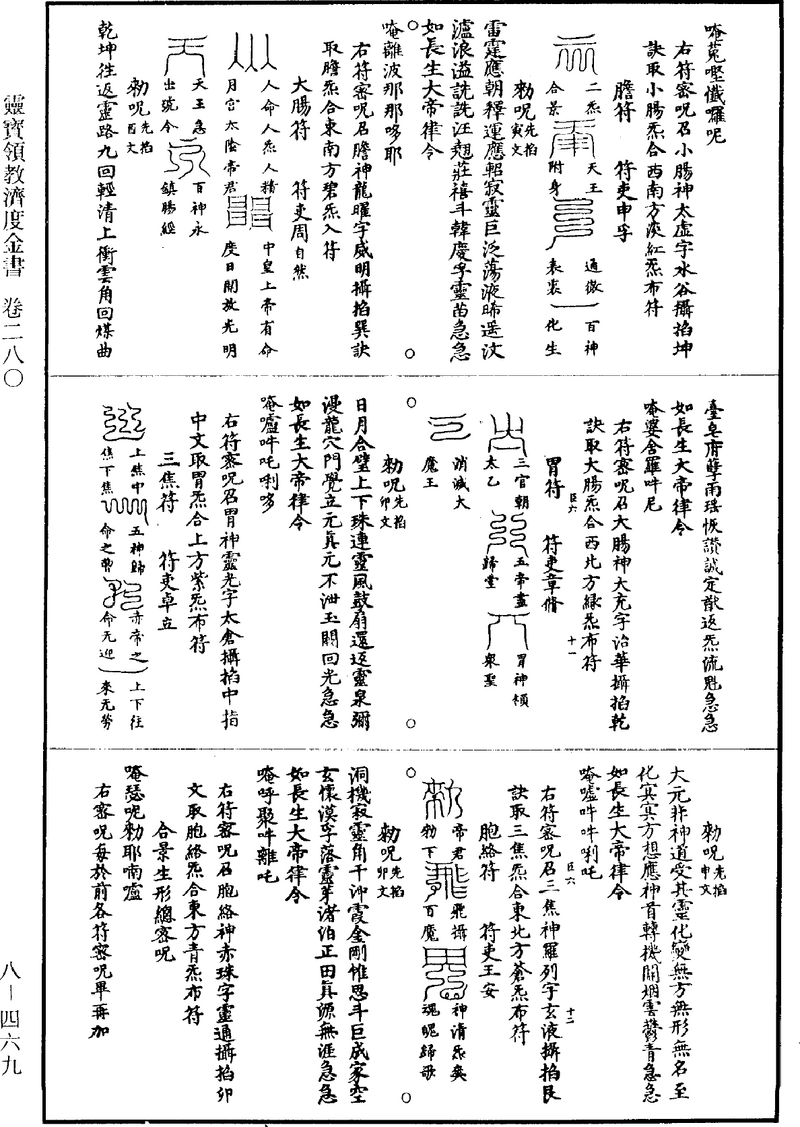 唵菟嘊懺囉呢
右符密呪召小腸神太虛字水谷攝掐坤
訣取小腸炁合西南方淡紅炁布符
膽符　符吏申孚
二炁　天王　通微　百神
合景　附身　表裘　化生
勑呪先掐寅文
雷霆應朝釋運應軺寂靈巨泛蕩液晞遥汶
瀘浪溢詵詵汪翹莊禧斗韓慶孚靈苗急急
如長生大帝律令
唵離波那那哆耶
右符密呪召膽神龍曜字威明攝掐巽訣
取膽炁合東南方碧炁入符
大腸符　符吏周自然
人命人炁人精　中皇上帝有命
月宫太陰帝君　度日開放光明
天王急　百神永
出號令　鎮腸經
勑呪先掐酉文
乾坤徃返靈路九回輕清上衝雲角回煤曲
臺皂膺孽南瑶恢讃誠定猷返炁流魁急急
如長生大帝律令
唵婆舍羅吽尼
右符密呪召大腸神大充字治華攝掐乾
訣取大腸炁合西北方緑炁布符
臣六　十一
胃符　符吏章脩
三官朝　五帝畫　胃神傾
太乙　歸堂　衆聖
消滅大
魔王
勑呪先掐卯文
日月合璧上下珠連靈風鼓扇還返靈泉彌
漫龍穴門覺立元真元不泄玉關回光急急
如長生大帝律令
唵嚧吽吒唎哆
右符密呪召胃神靈光字太倉攝掐中指
中文取胃炁合上方紫炁布符
三焦符　符吏卓立
上焦中　五神歸　赤帝之　上下往
焦下焦　命之帶　命无迎　來无勞
勑呪先掐申文
大元非神道受其靈化變無方無形無名至
化冥冥方想應神首轉機關烟雲鬱青急急
如長生大帝律令
唵嘘吽吽唎吒
臣六　十二
右符密呪召三焦神羅列字玄液攝掐艮
訣取三焦炁合東北方蒼炁布符
胞絡符　符吏王安
帝君　飛攝　神清炁爽
勑下　百魔　魂昵歸歌
勑呪先掐卯文
洞機寂靈角千沖霞金剛惟思斗巨成家空
玄懷漠孚落靈芽渚泊正田真源無涯急急
如長生大帝律令
唵呼聚吽離吒
右符密呪召胞絡神赤珠字靈通攝掐卯
文取胞絡炁合東方青炁布符
合景生形總密呪
唵瑟呢勑耶喃嚧
右密呪每於前各符密呪畢再加
靈寶領教濟度金書　卷二八〇
八—四六九